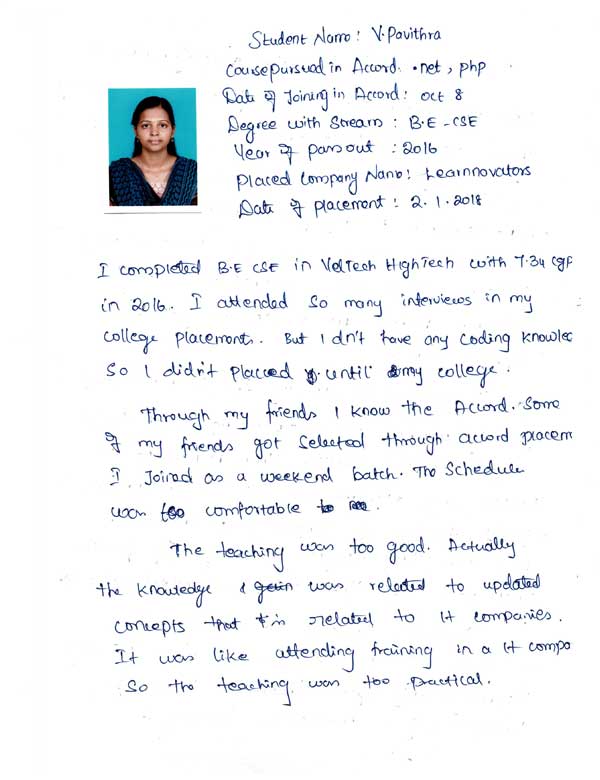 Student Name : V. Pavithra
Course pursued in Accord. .net, php
Date of Joining in Accord : oct 8
Degree with Stream : B.E - CSE
Year of passout : 2016
Placed Company Name : Learnnovators
Date of placement : 2.1.2018
I completed B.E CSE in VelTech HighTech with 7.34 cgp
in 2016. I attended so many interviews in my
college placement. But I dn't have any coding knowlec
So I didn't placed until my college.
Through my friends I know the Accord. Some
of my friends got selected through accord placem
I Joined as a weekend batch. The Schedule
was too comfortable to me.
The teaching was too good. Actually
the knowledge I gain was related to updated
concepts that is related to It companies.
It was like attending training in a It compa
So the teaching was too practical.